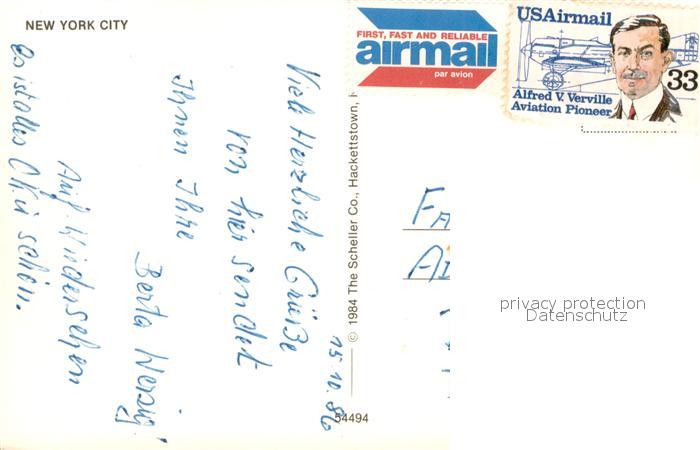 NEW YORK CITY
FIRST, FAST AND RELIABLE
airmail
par avion
USAirmail
Alfred V. Verville
Aviation Pioneer
33
15.10.86
Viele Herzliche Grüße
von hier sendet
Ihnen Ihre
Berta
Auf Wiedersehen
es ist alles OK u schön.
© 1984 The Scheller Co., Hackettstown,
54494
Fa
privacy protection
Datenschutz